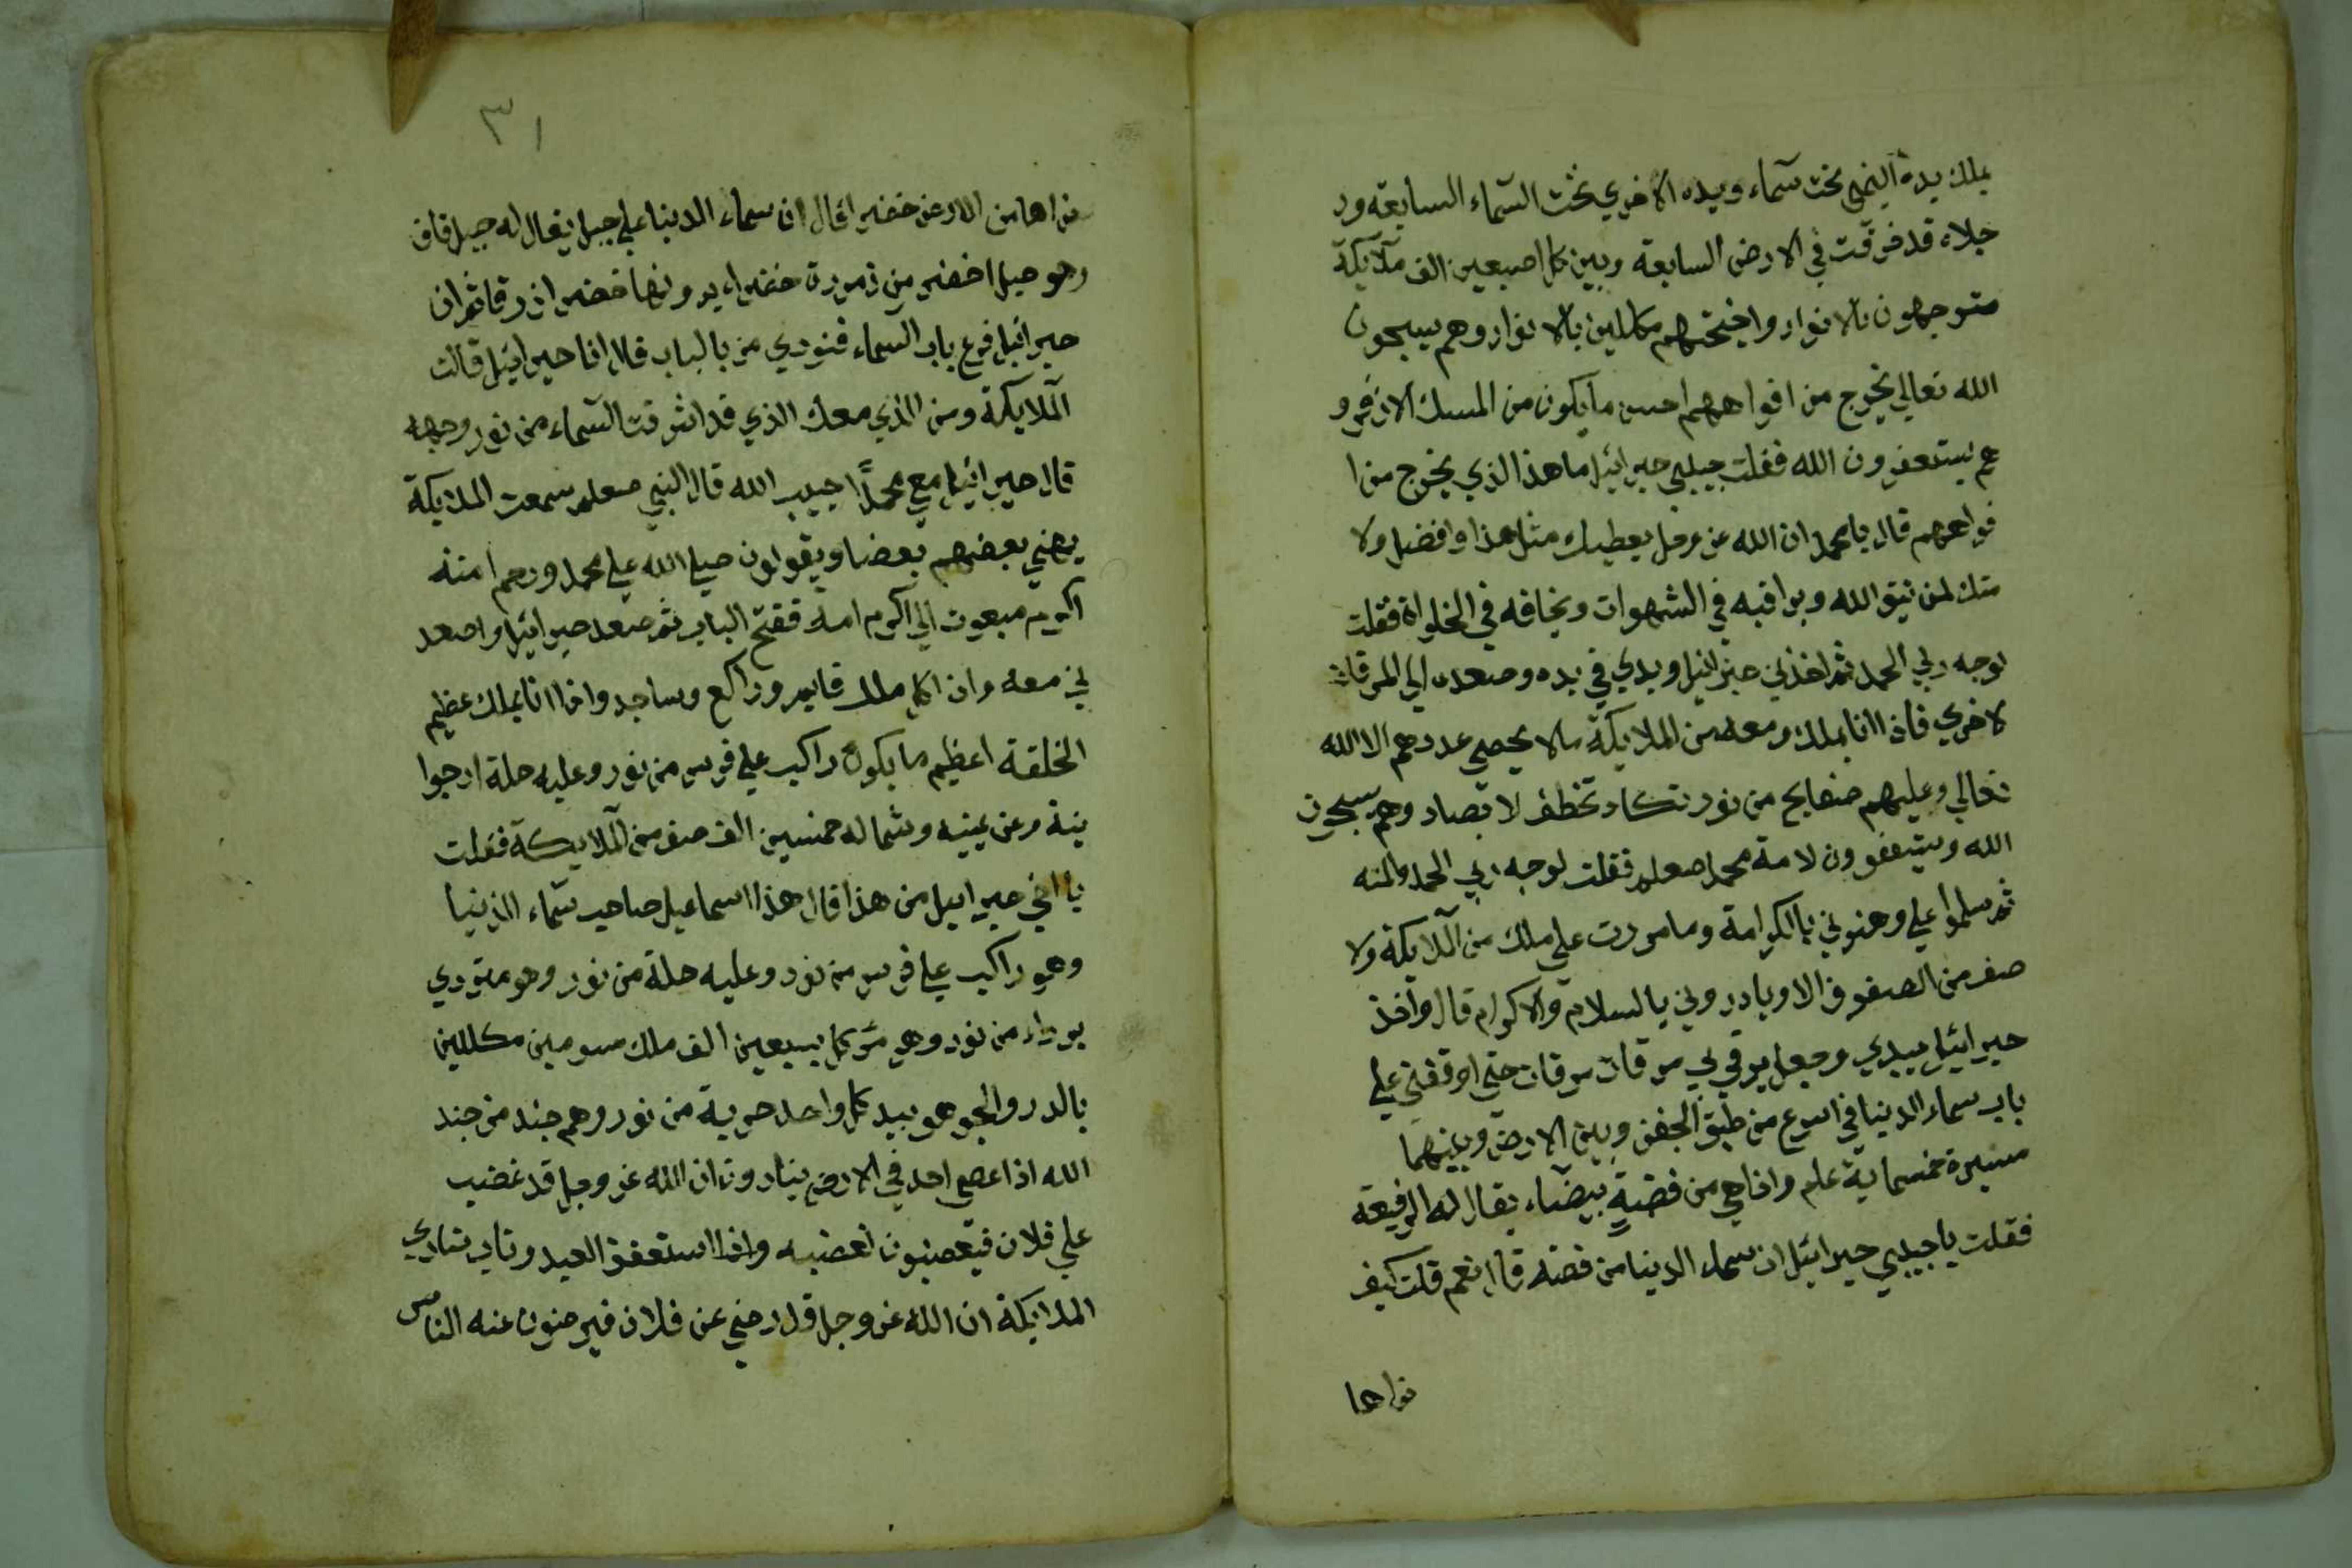 بملك يده اليمني تحت سماء ويده الاخري تحت السماء السابعه ور
جلاه قد فرقت في الارض السابعة وبين كل اصبعين الف ملايكة
متوجهون بالانوار واجنحتهم مكللين بالانوار وهم يسبحون
الله تعالي يخرج من افواههم احسن مايكون من المسك الاذفر و
هم يستغفرون الله فقلت حبيبي جبرائيل ما هذا الذي يخرج من ا
فواههم قال يا محمد ان الله عز وجل يعطيك مثل هذا وافضل ولا
متك لمن يتق الله ويراقبه في الشهوات ويخافه في الخلوات فقلت
لوجه ربي الحمد ثم اخذني جبرائيل ويدي في يده وصعد الي المرقات
لاخري فاذا انا بملك ومعه من الملايكة مالا يحصي عددهم الا الله
تعالي وعليهم صفايح من نور تكاد تخطف لابصار وهم يسبحون
الله ويستغفرون لامة محمد صعلم فقلت لوجه ربي الحمد والمنه
ثم سلموا علي وهنوني بالكرامة وما مررت علي ملك من الملايكة ولا
صف من الصفوف الا وبادروني بالسلام والاكرام قال واخذ
جبرائيل بيدي وجعل يرقي بي مرقات مرقات حتي اوقفني علي
باب سماء الدنيا في اسرع من طبق الجفن وبين الارض وبينهما
مسيرة خمسماية عام واذا هي من فضة بيضاء يقال له الرفيعه
فقلت يا حبيبي جبرائيل ان سماء الدنيا من فضه قال نعم قلت كيف
نراها
٣١
نراها من الارض خضرا قال ان سماء الدنيا علي جبل يقال له جبل قاف
وهو جبل اخضر من زمردة خضراء يرونها خضر ازرقا ثم ان
جبرائيل قرع باب السماء فنودي من بالباب قال انا جبرائيل قالت
الملايكة ومن الذي معك الذي قد اشرقت السماء من نور وجهه
قال جبرائيل معي محمدًا حبيب الله قال النبي صعلم سمعت الملايكة
يهني بعضهم بعضا ويقولون صلي الله علي محمد ورحم امته
اكرم مبعوث الي اكرم امة ففتح الباب ثم صعد جبرائيل واصعد
ني معه واذ اكل ملك قايم وراكع وساجد واذا انا بملك عظيم
الخلقة اعظيم ما يكون راكب علي فرس من نور وعليه حلة ارجوا
نية وعن يمينه وشماله خمسين الف صف من الملايكة فقلت
يا اخي جبرايل من هذا قال هذا اسماعيل صاحب سماء الدنيا
وهو راكب علي فرس من نور وعليه حلة من نور وهو متردي
برداء من نور وهو مركل بسبعين الف ملك مسومين مكللين
بالدر والجوهر بيد كل واحد حربة من نور وهم جند من جند
الله اذا عصي احد في الارض ينادون ان الله عز وجل قد غضب
علي فلان فيغضبون لغضبه واذا استغفر العبد وتاب تنادي
الملايكة ان الله عز وجل قد رضي عن فلان فيرضون عنه الناس